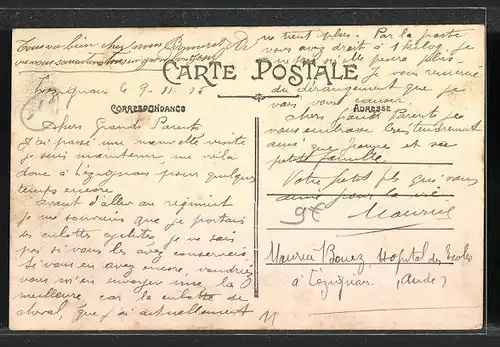 CARTE POSTALE
CORRESPONDANCE
ADRESSE
Lézignan le 9. 11. 15
Chers Grands Parents
J'ai passé une nouvelle visite
je suis maintenu, me voilà
donc à Lézignan pour quelques
temps encore.
Avant d'aller au régiment
je me souviens que je portais
des culottes cyclistes je ne sais
pas si vous les avez conservées.
Si vous en avez encore, voudriez
vous m'en envoyer une, la
meilleure, car la culotte de
cheval que j'ai actuellement
ne tient plus. Par la poste
vous avez droit à 1 kilog. je
ne pense plus.
Je vous remercie
du dérangement que je
vais vous causer.
Chers Grands Parents je
vous embrasse bien tendrement
ainsi que Jeanne et sa
petite famille.
Votre petit fils qui vous
aime pour la vie.
Maurice
9€
Maurice Bouez, Hopital des Ecoles
à Lézignan. (Aude)
11